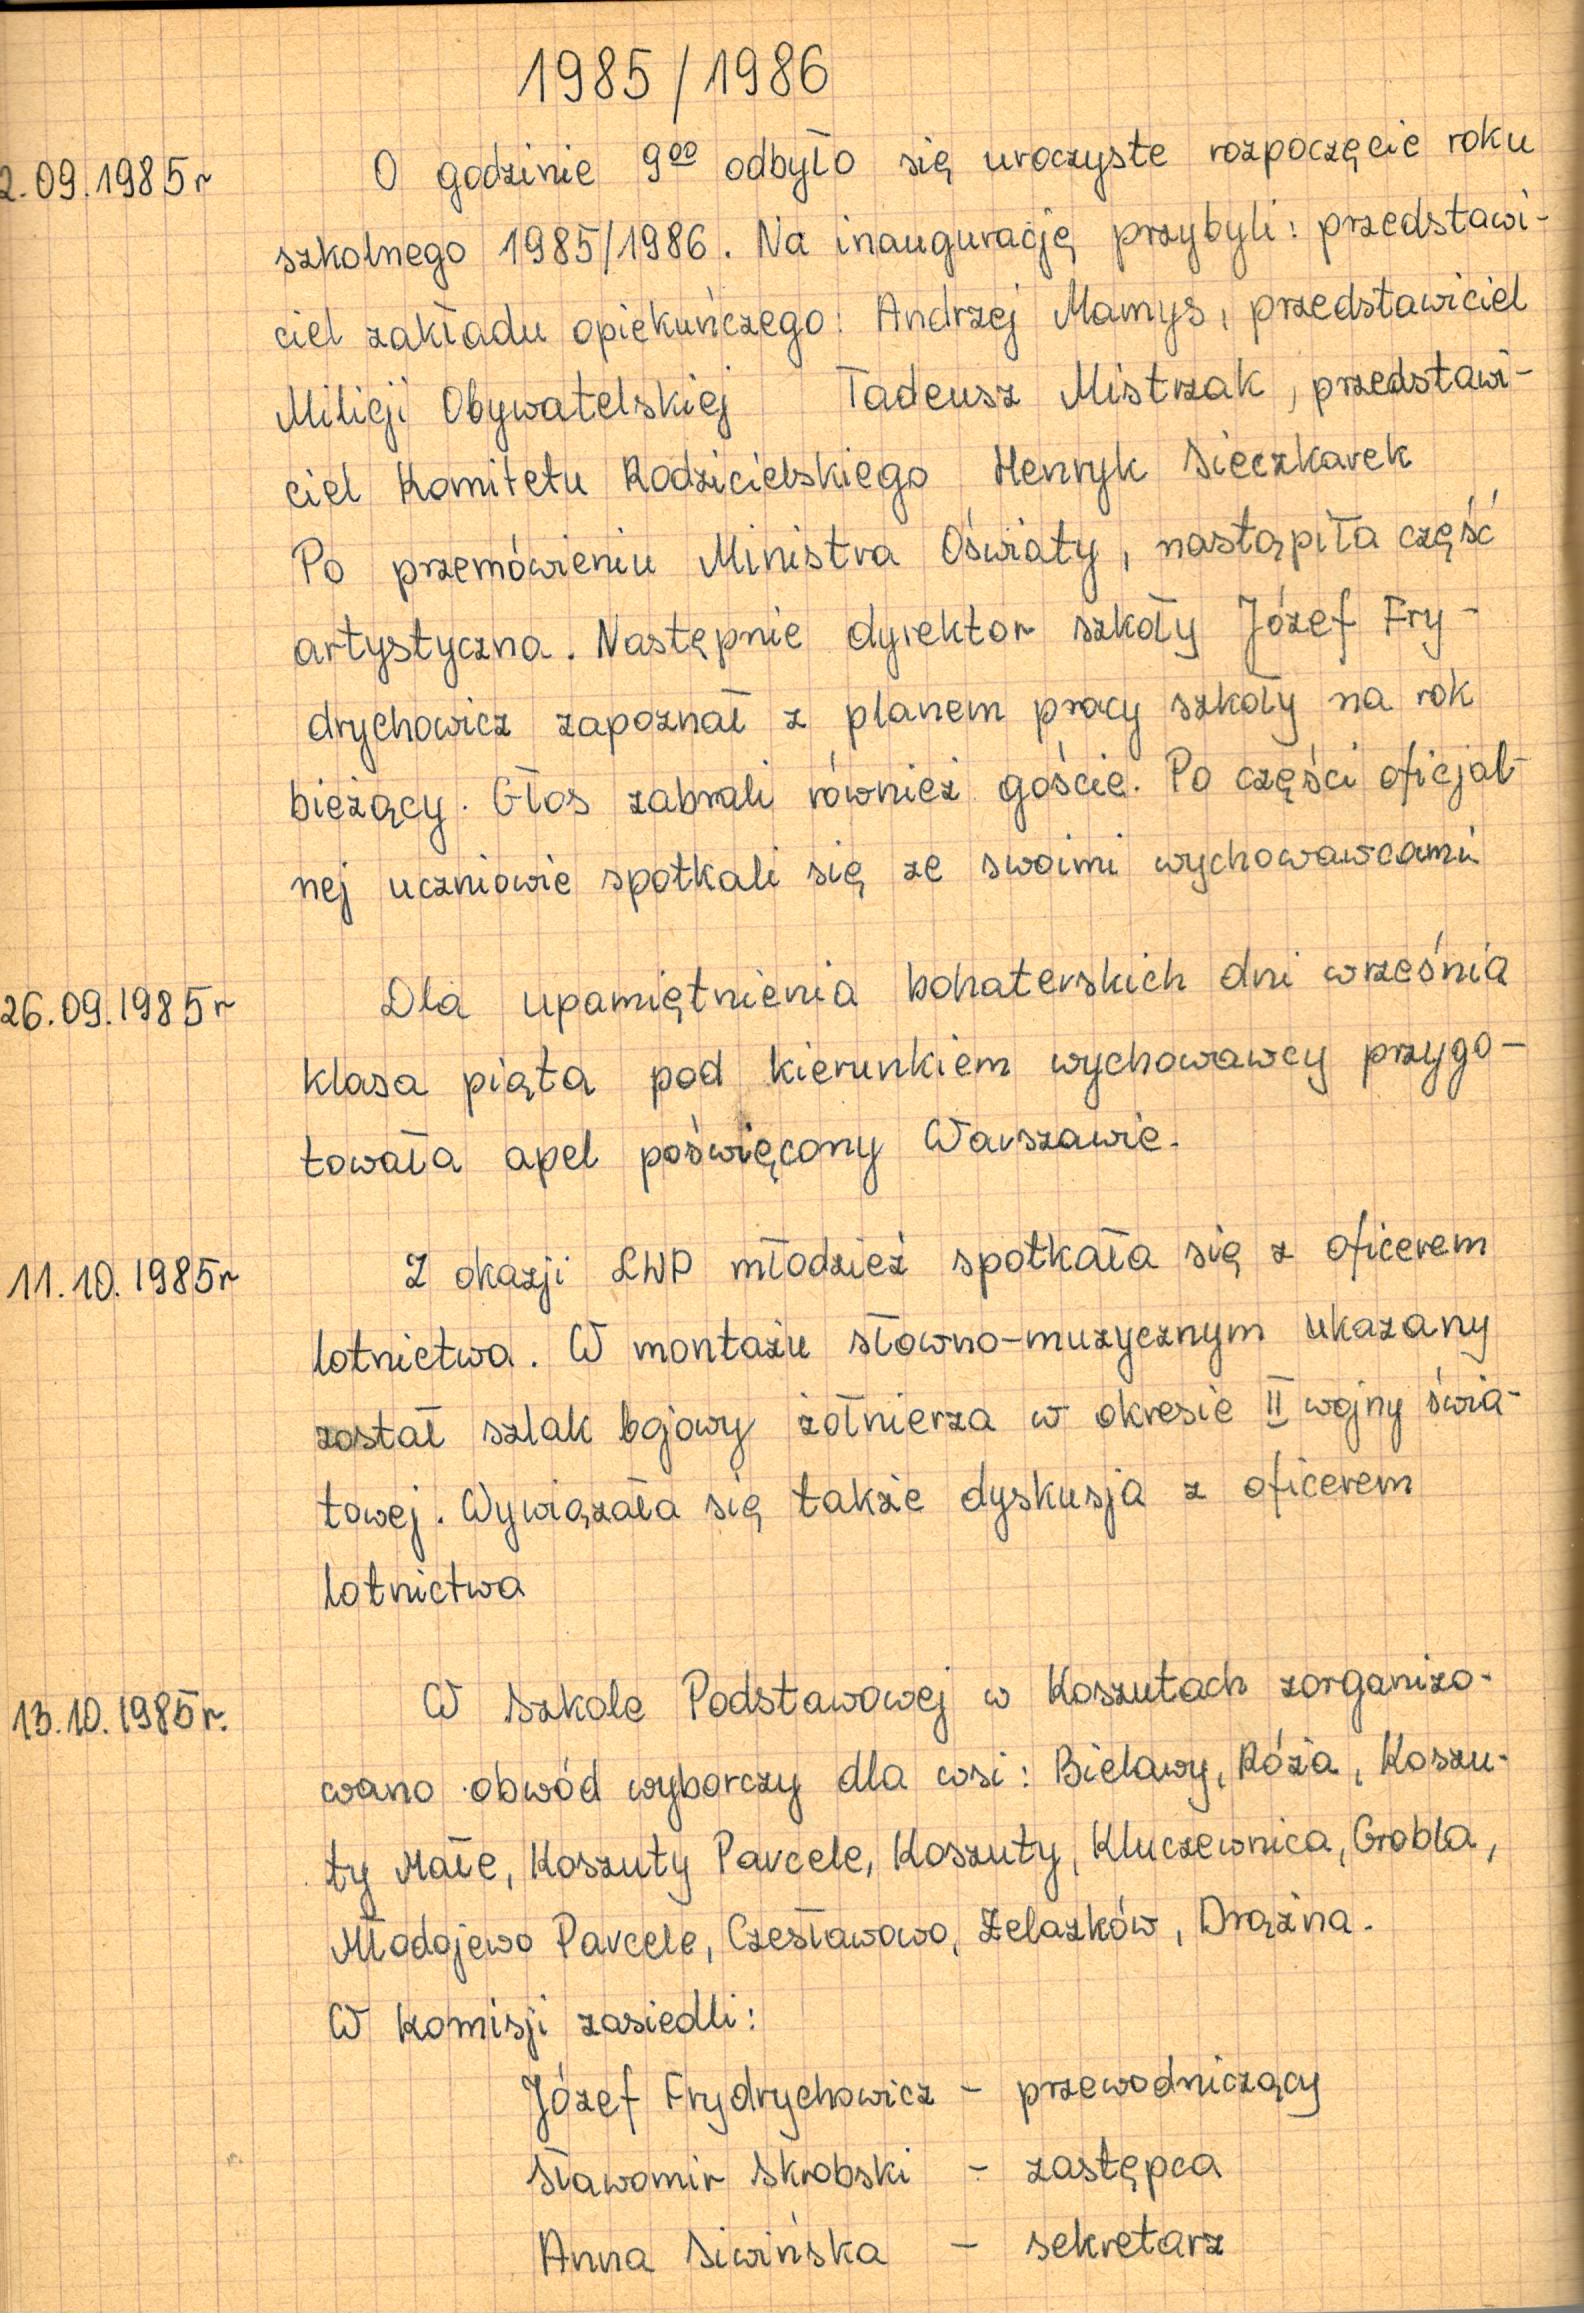 1985/1986
2.09.1985r O godzinie 9⁰⁰ odbyło się uroczyste rozpoczęcie roku
szkolnego 1985/1986. Na inaugurację przybyli: przedstawi-
ciel zakładu opiekuńczego: Andrzej Mamys, przedstawiciel
Milicji Obywatelskiej Tadeusz Mistrzak, przedstawi-
ciel Komitetu Rodzicielskiego Henryk Sieczkarek
Po przemówieniu Ministra Oświaty, nastąpiła część
artystyczna. Następnie dyrektor szkoły Józef Fry-
drychowicz zapoznał z planem pracy szkoły na rok
bieżący. Głos zabrali również goście. Po części oficjal-
nej uczniowie spotkali się ze swoimi wychowawcami
26.09.1985r Dla upamiętnienia bohaterskich dni września
klasa piąta pod kierunkiem wychowawcy przygo-
towała apel poświęcony Warszawie.
11.10.1985r Z okazji LWP młodzież spotkała się z oficerem
lotnictwa. W montażu słowno-muzycznym ukazany
został szlak bojowy żołnierza w okresie II wojny świa-
towej. Wywiązała się także dyskusja z oficerem
lotnictwa
13.10.1985r. W Szkole Podstawowej w Koszutach zorganizo-
wano obwód wyborczy dla wsi: Bielawy, Róża, Koszu-
ty Małe, Koszuty Parcele, Koszuty, Kluczewnica, Grobla,
Młodojewo Parcele, Czesławowo, Żelazków, Drążna.
W komisji zasiedli:
Józef Frydrychowicz - przewodniczący
Sławomir Skrobski - zastępca
Anna Siwińska - sekretarz